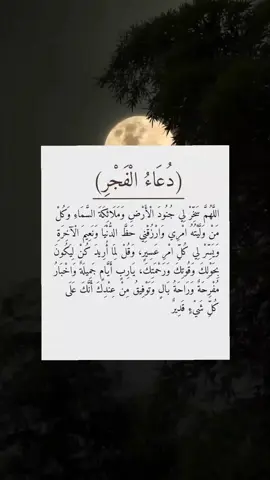 (دُعَاءُ الْفَجْرِ)
اللَّهُمَّ سَخِّرْ لِي جُنُودَ الْأَرْضِ وَمَلَائِكَةَ السَّمَاءِ وَكُلَّ
مَنْ وَلَّيْتَهُ امْرِي وَارْزُقْنِي حَظَّ الدُّنْيَا وَنَعِيمَ الْآخِرَةِ
وَيَسِّرْ لِي كُلِّ امْرٍ عَسِيرٍ، وَقُلْ لِمَا أُرِيدَ كُنْ لِيَكُونَ
بِحَوْلِكَ وَقُوَّتِكَ وَرَحْمَتِكَ، يَارِبِ أَيَّامٍ جَمِيلَةً وَاخْبَارُ
مُفْرِحَةً وَرَاحَةُ بَالٍ وَتَوْفِيقُ مِنْ عِنْدِكَ أَنَّكَ عَلَى
كُلِّ شَيْءٍ قَدِيرٌ